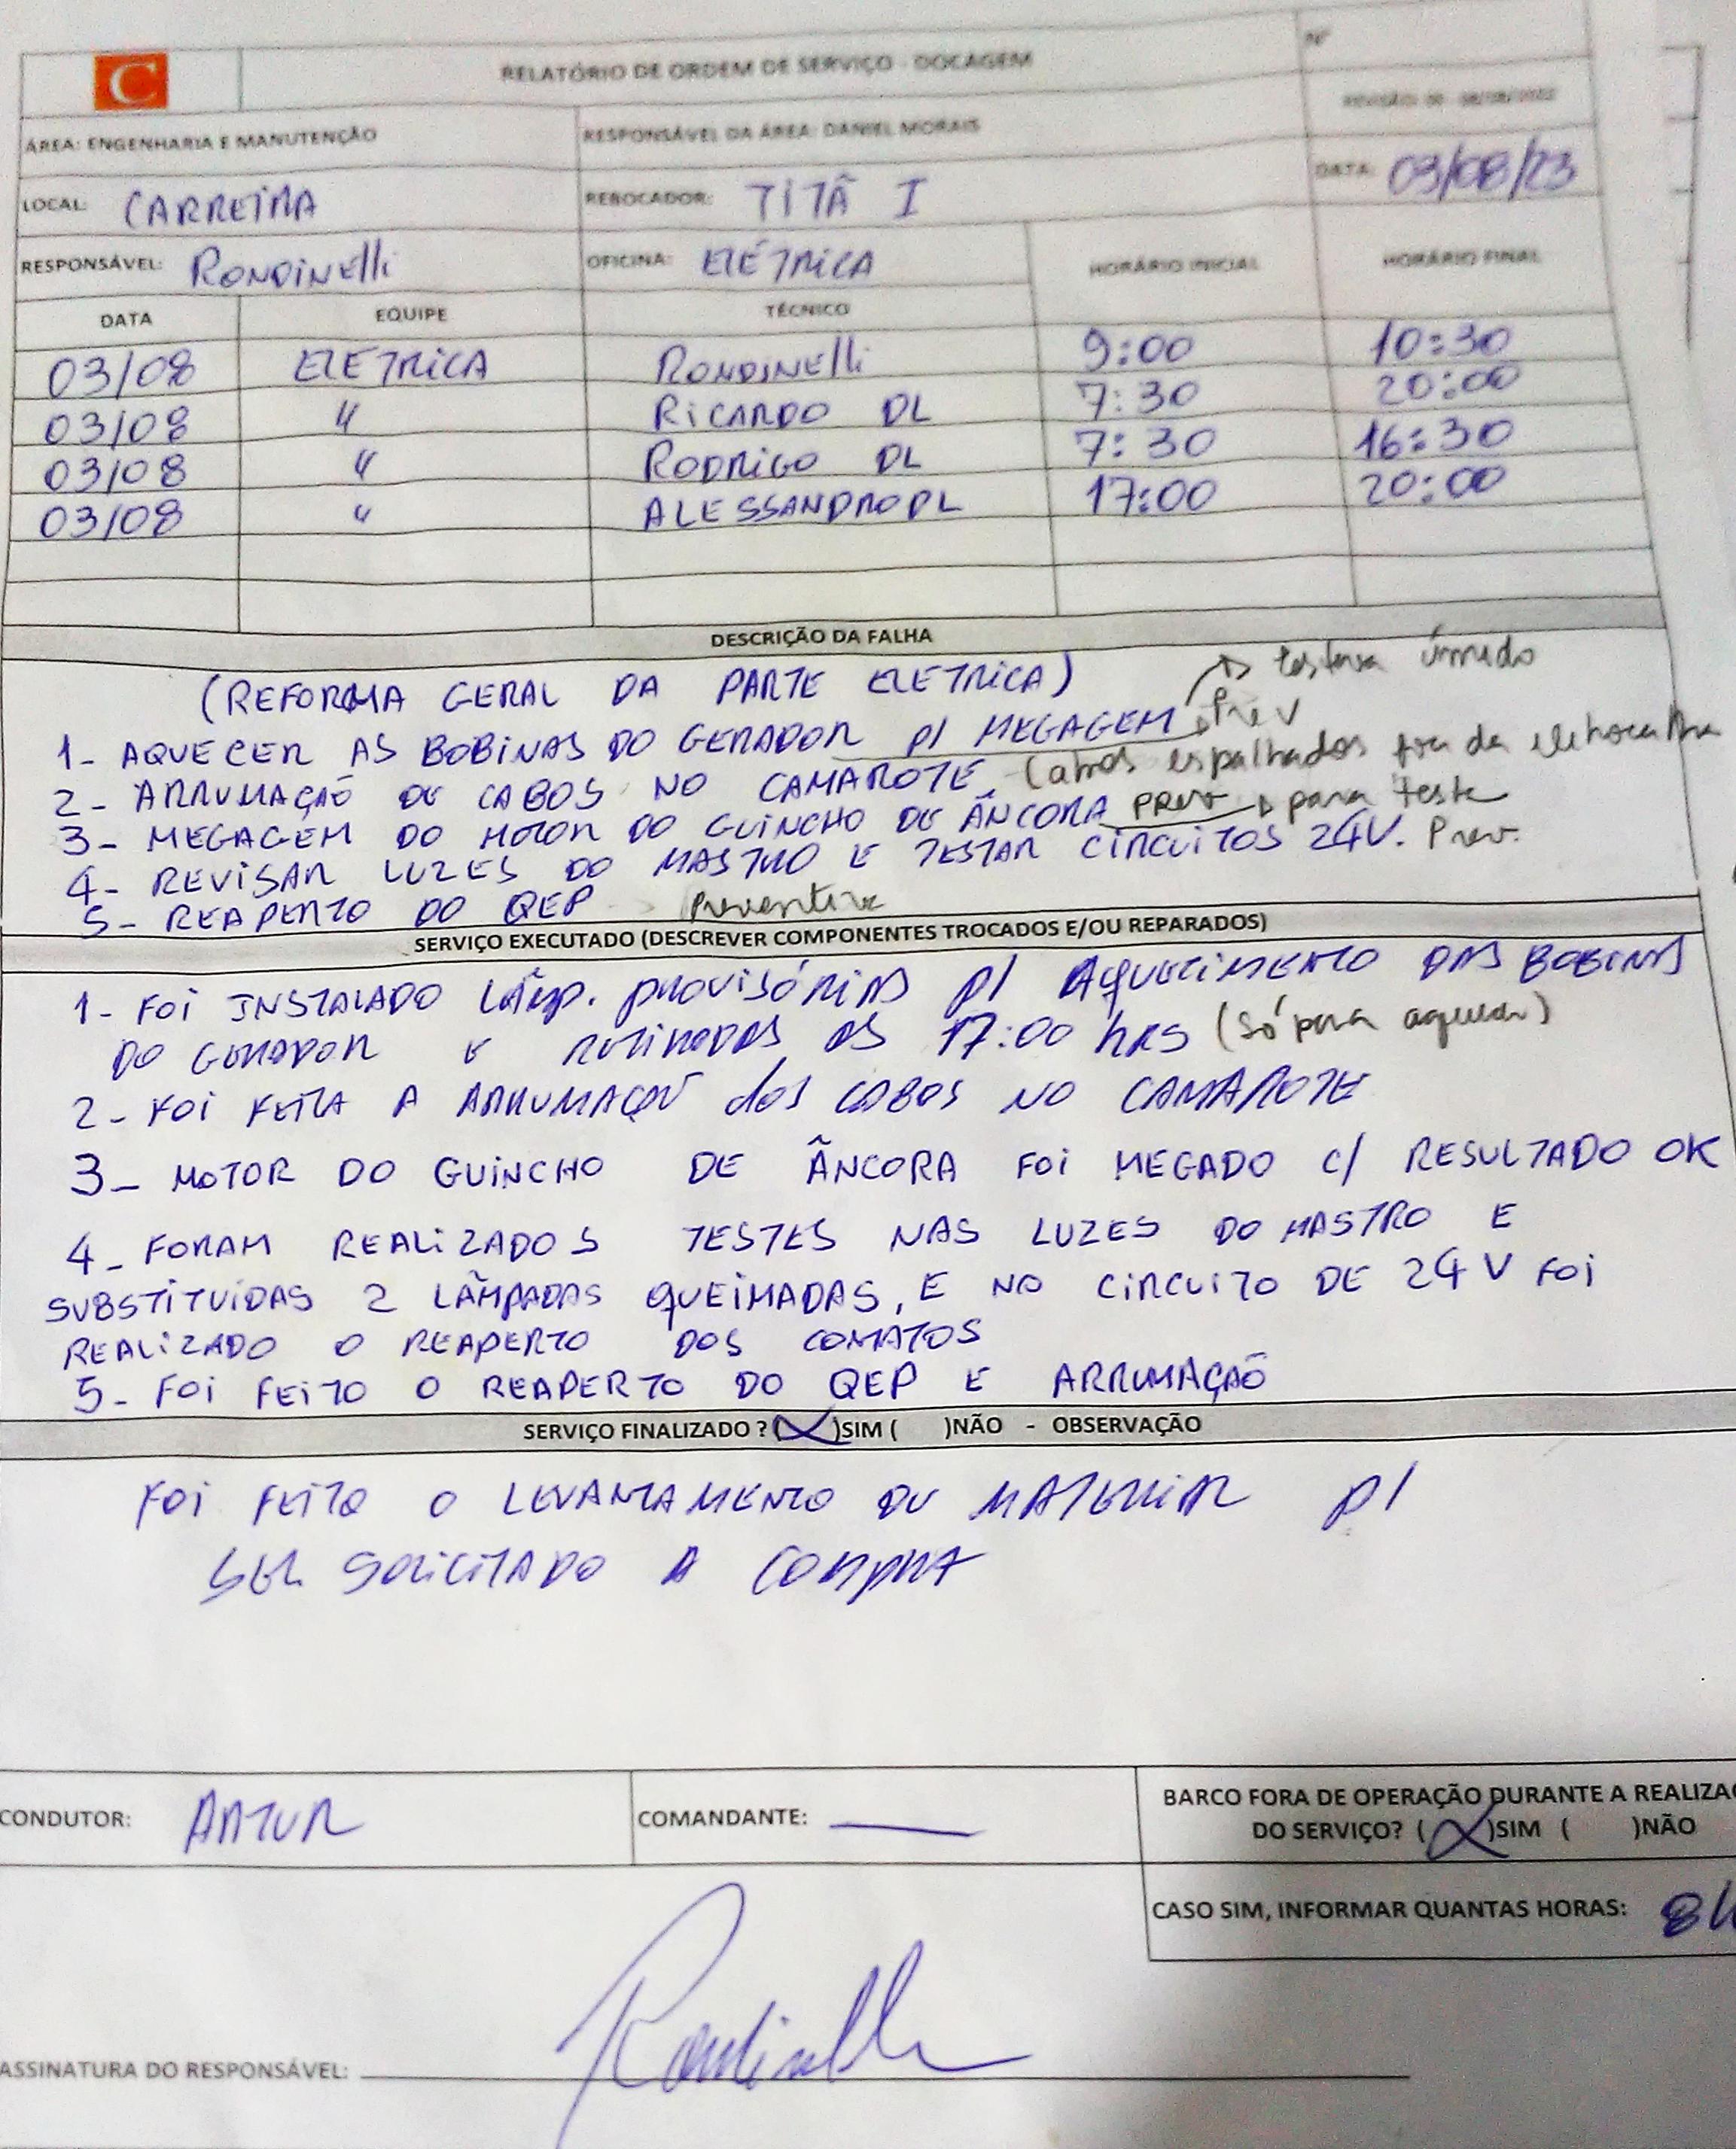 C
RELATÓRIO DE ORDEM DE SERVIÇO - DOCAGEM
Nº
ÁREA: ENGENHARIA E MANUTENÇÃO
RESPONSÁVEL DA ÁREA: DANIEL MORAIS
LOCAL: CARREIRA
REBOCADOR: TITÃ I
DATA: 03/08/23
RESPONSÁVEL: RONDINElli
OFICINA: ELÉTRICA
HORÁRIO INICIAL
HORÁRIO FINAL
DATA EQUIPE TÉCNICO
03/08 ELETRICA RONDINElli 9:00 10:30
03/08 " RICARDO DL 7:30 20:00
03/08 " RODRIGO DL 7:30 16:30
03/08 " ALESSANDRO DL 17:00 20:00
DESCRIÇÃO DA FALHA
(REFORMA GERAL DA PARTE ELETRICA) estava úmido
1- AQUECER AS BOBINAS DO GERADOR p/ MEGAGEM Prev
2- ARRUMAÇÃO DE CABOS NO CAMAROTE (cabos espalhados fora da eletrocalha
3- MEGAGEM DO MOTOR DO GUINCHO DE ÂNCORA PREV para teste
4- REVISAR LUZES DO MASTRO E TESTAR CIRCUITOS 24V. Prev.
5- REAPERTO DO QEP Preventiva
SERVIÇO EXECUTADO (DESCREVER COMPONENTES TROCADOS E/OU REPARADOS)
1- FOI INSTALADO LÂMP. PROVISÓRIAS p/ AQUECIMENTO DAS BOBINAS
DO GERADOR E RETIRADAS AS 17:00 hRS (só para aquecer)
2- FOI FEITA A ARRUMAÇÃO dos CABOS NO CAMAROTE
3- MOTOR DO GUINCHO DE ÂNCORA FOI MEGADO c/ RESULTADO OK
4- FORAM REALIZADOS TESTES NAS LUZES DO MASTRO E
SUBSTITUÍDAS 2 LÂMPADAS QUEIMADAS, E NO CIRCUITO DE 24V FOI
REALIZADO O REAPERTO DOS CONTATOS
5- FOI FEITO O REAPERTO DO QEP E ARRUMAÇÃO
SERVIÇO FINALIZADO ? (X)SIM ( )NÃO - OBSERVAÇÃO
FOI FEITO O LEVANTAMENTO DE MATERIAL p/
SER SOLICITADO A COMPRA
CONDUTOR: ARTUR
COMANDANTE: —
BARCO FORA DE OPERAÇÃO DURANTE A REALIZAÇ
DO SERVIÇO? (X)SIM ( )NÃO
CASO SIM, INFORMAR QUANTAS HORAS: 8h
ASSINATURA DO RESPONSÁVEL: Rondinelli